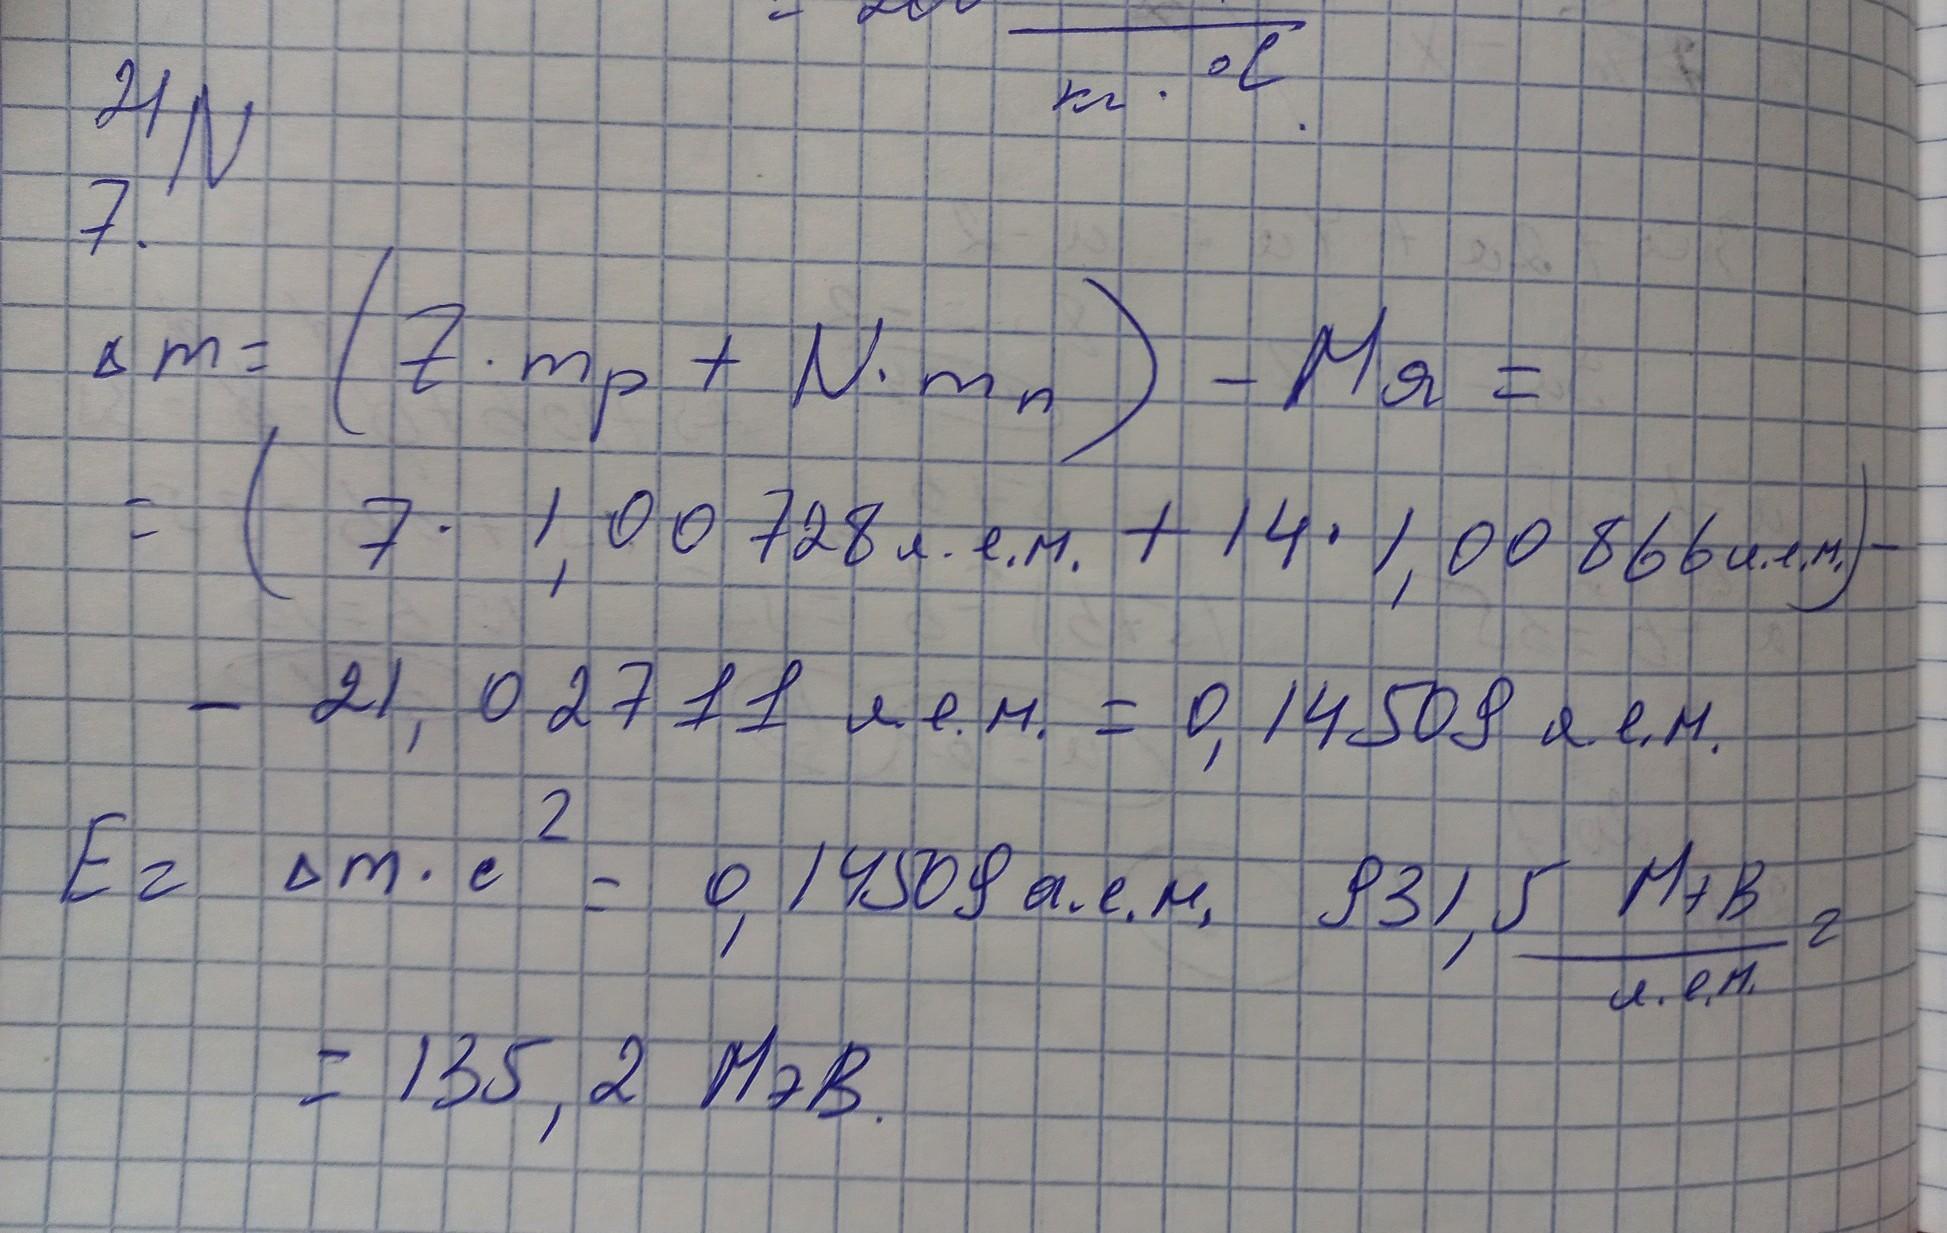 кг · °C.
21 N
7.
Δm = (Z · mp + N · mn) - Mя =
= (7 · 1,00728 а.е.м. + 14 · 1,00866 а.е.м.) -
- 21,02711 а.е.м. = 0,14509 а.е.м.
E = Δm · c² = 0,14509 а.е.м. 931,5 МэВ/а.е.м. =
= 135,2 МэВ.